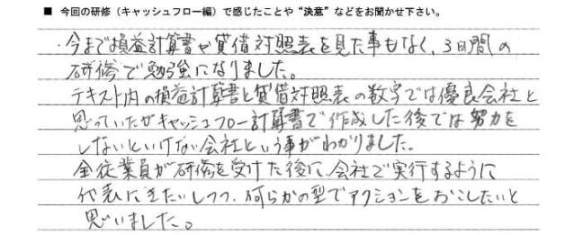 ■ 今回の研修（キャッシュフロー編）で感じたことや“決意”などをお聞かせ下さい。
・今まで損益計算書や貸借対照表を見た事もなく、3日間の
研修で勉強になりました。
テキスト内の損益計算書と貸借対照表の数字では優良会社と
思っていたがキャッシュフロー計算書で作成した後では努力を
しないといけない会社という事がわかりました。
全従業員が研修を受けた後に、会社で実行するように
代表にきたいしつつ、何らかの型でアクションをおこしたいと
思いました。